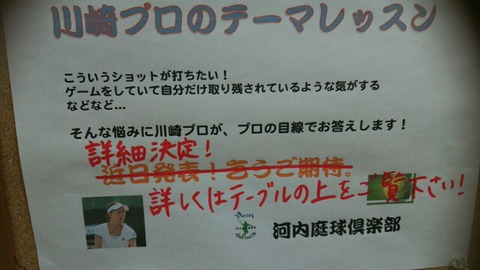 川崎プロのテーマレッスン
こういうショットが打ちたい！
ゲームをしていて自分だけ取り残されているような気がする
などなど…
そんな悩みに川崎プロが、プロの目線でお答えします！
詳細決定！
近日発表！乞うご期待。
詳しくはテーブルの上をご覧下さい！
河内庭球倶楽部